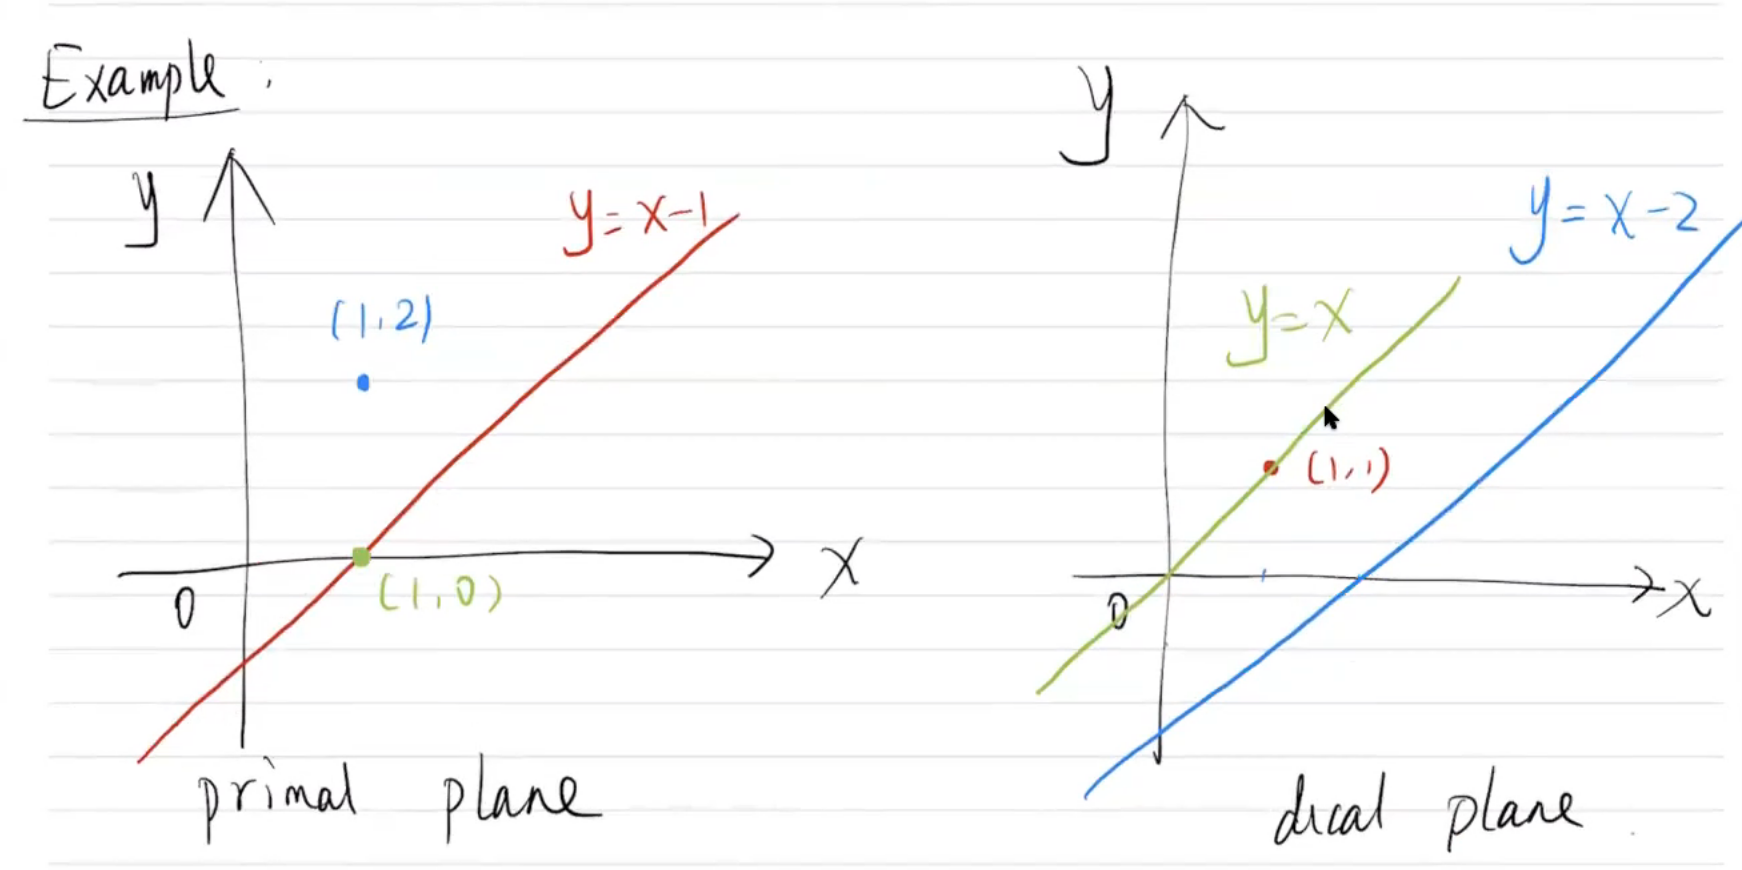 Example:
y
y = x-1
(1,2)
(1,0)
0
x
primal plane
y
y = x-2
y = x
(1,1)
0
x
dual plane.